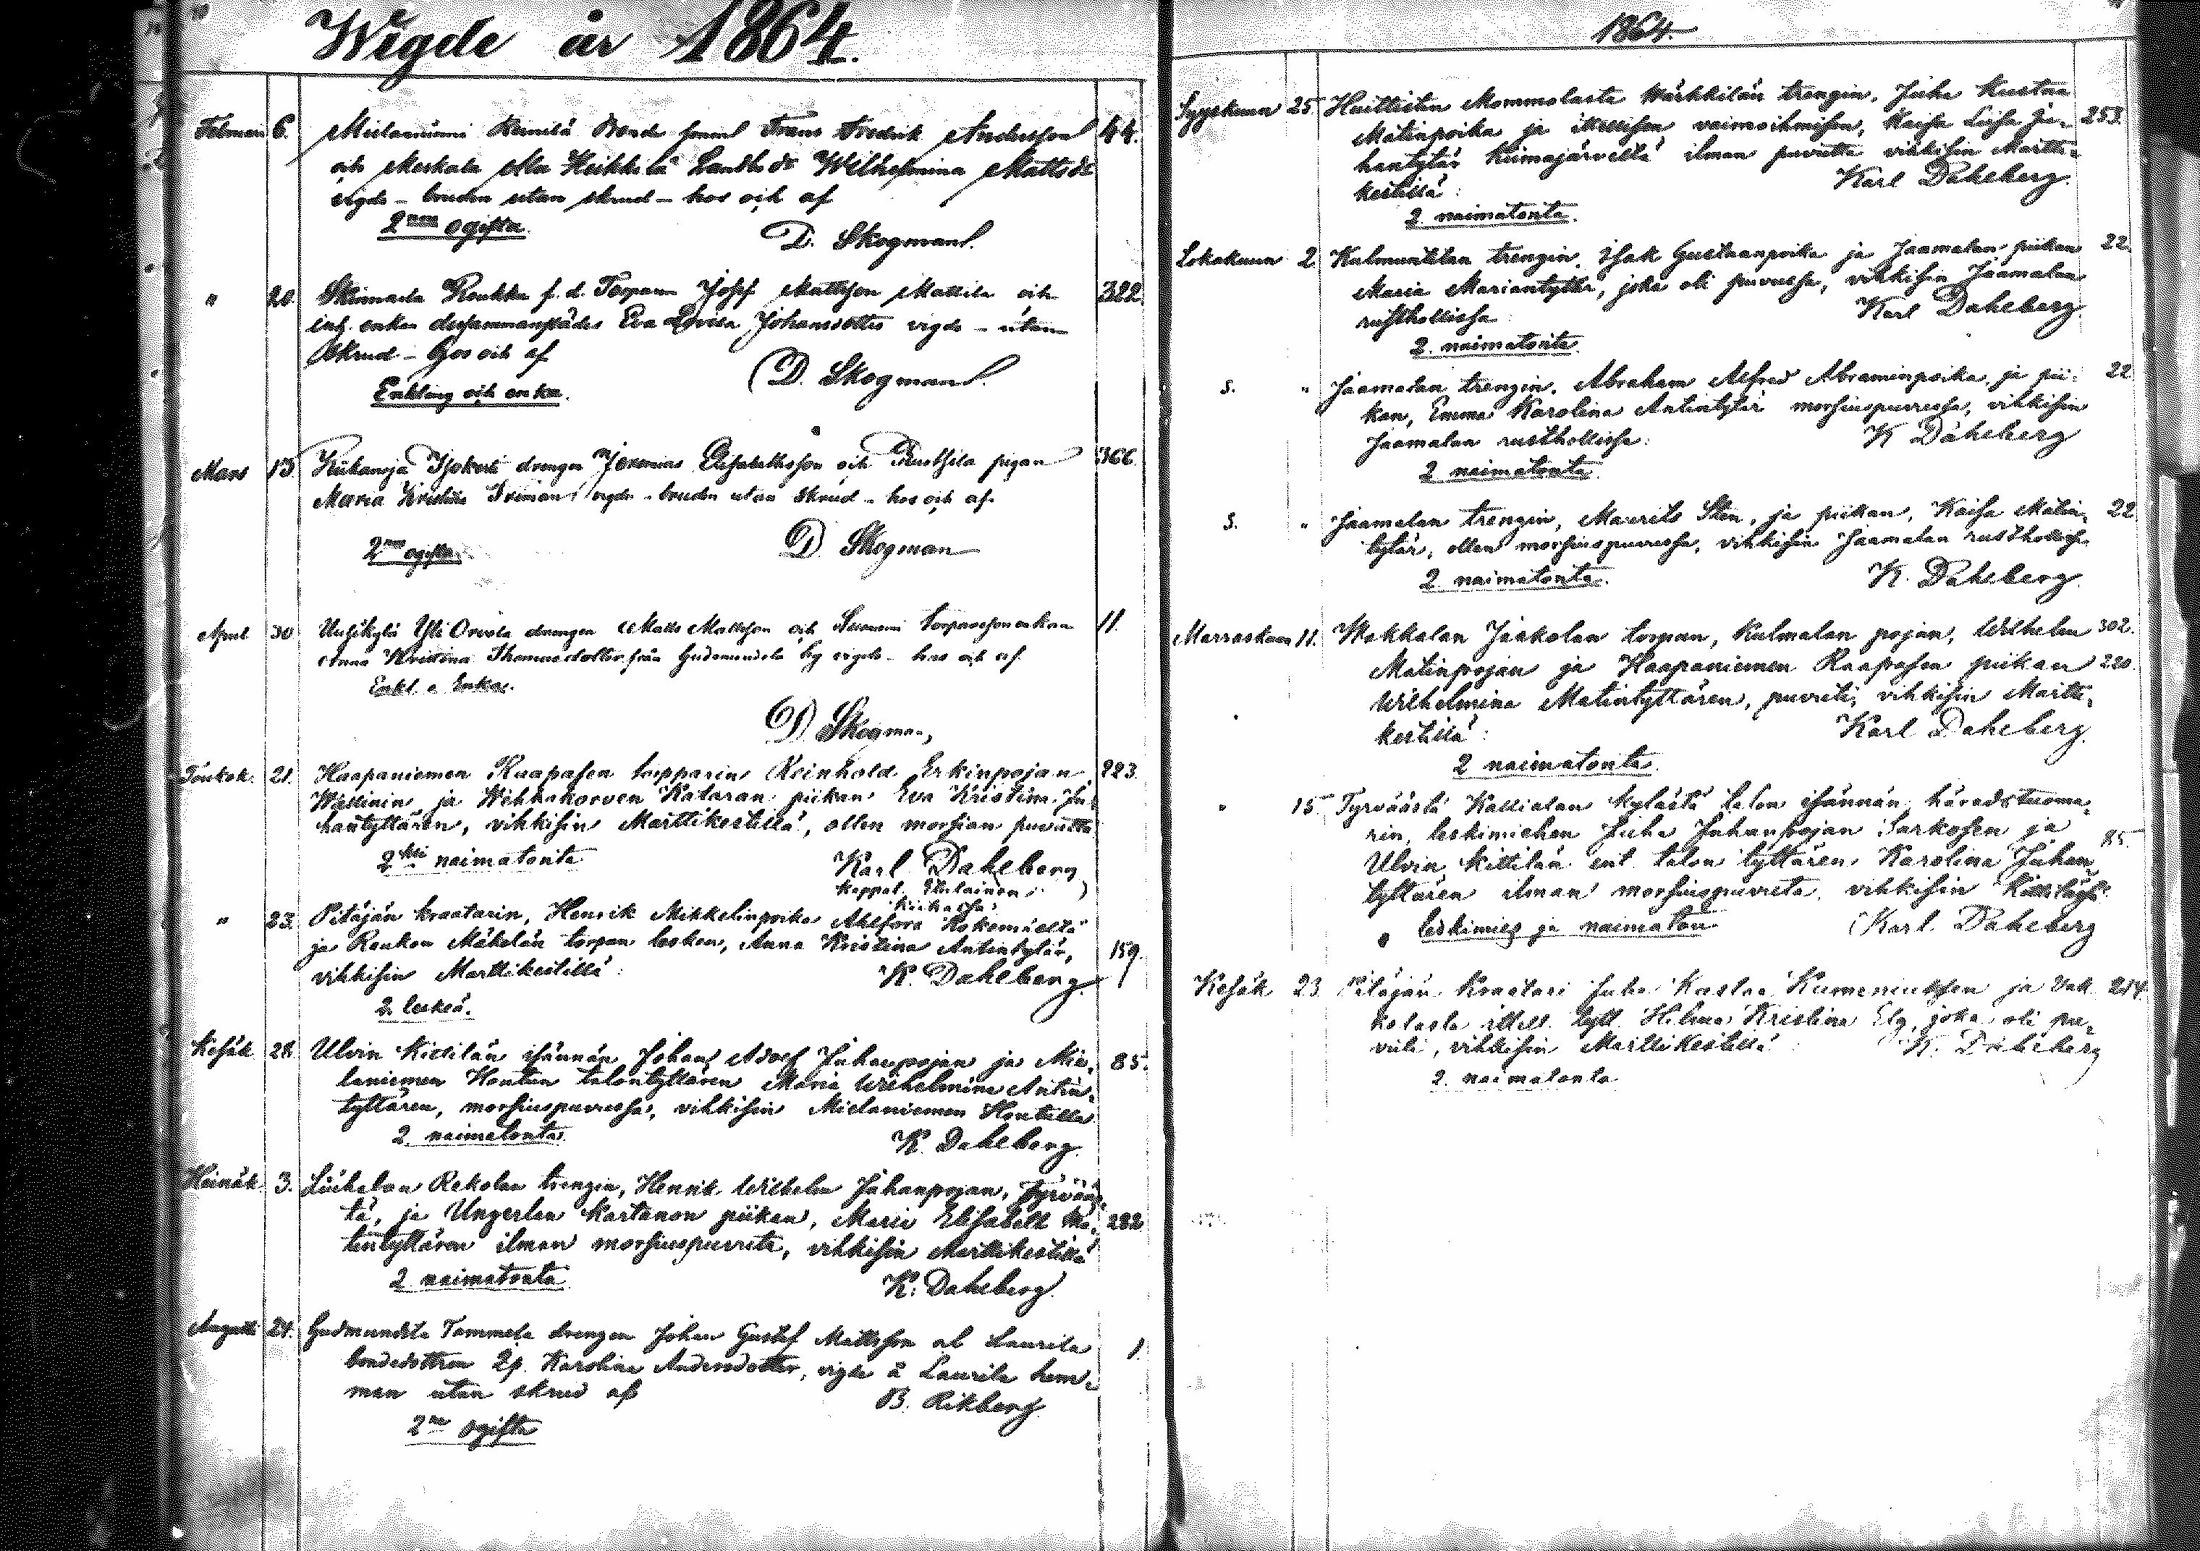 Wigde år 1864.
Februari 6. Mielaniemi Kunilä Bonde sonen Frans Fredrik Andersson 44.
och Meskala Ala Heikkilä Landb dr Wilhelmina Matts dr
vigde – bruden utan skrud – hos och af
2nne ogifta. D. Skogman.
" 20. Skinnala Roukka f.d. Torparn Josef Mattsson Mattila och 322
enkan dersammanstädes Eva Lovisa Johansdotter vigde – utan
Skrud – hos och af
Enkling och enka. D. Skogman.
Mars 13. Kiikanoja drengen Jeremias Elisabethsson och pigan 366
Maria Kristina vigde – bruden utan skrud – hos och af
2nne ogifta. D. Skogman
April 30 Uusikylä Yli Orvola drengen Matts Mattsson och Torparesonenkan 11.
Anna Kristina Thomasdotter från Gudmundila by vigde – hos och af
Enkl. o Enka.
D Skogman,
Toukok. 21. Haapaniemen Raapasen torpparin Reinhold Erkinpojan 223.
Wallinin ja Wehkakorven Kataran piikan Eva Kristina Ju-
hantyttären, vihkisin Marttikestillä, ollen morsian puvutta
2ksi naimatonta Karl Dahlberg
Kappal. Ehrlainen
" 23. Pitäjän kraatarin, Henrik Mikkelinpoika Ahlfors Kokemäeltä
ja Raukon Mäkelän torpan lesken, Anna Kristina Antintytär, 159.
vihkisin Marttikestillä: K. Dahlberg
2 leskeä.
Kesäk. 28. Ulvin Kittilän isännän Johan Adolf Juhanpojan ja Mie- 85.
laniemen Hontun talontyttären Maria Wilhelmina Antin-
tyttären, morsiuspuvussa, vihkisin Mielaniemen Hontulla
2. naimatonta. K. Dahlberg.
Heinäk. 3. Liuhalan Rekolan trengin, Henrik Wilhelm Juhanpojan, Tyrvääs-
tä, ja Ungerlan Kartanon piikan, Maria Elisabeth Ma- 282
tintyttären ilman morsiuspuvutta, vihkisin Marttikestillä
2 naimatonta. K. Dahlberg.
Augusti 24. Gudmundila Tammela drengen Johan Gustaf Mattsson o Laurila 1.
bondedottren Karolina Andersdotter, vigde å Laurila hem-
man utan skrud af B. Rikberg.
2ne ogifta
1864.
Syyskuun 25. Huittisten Mommolasta Wärkkilän trengin, Juha Kustaa 253.
Matinpoika ja itsellisen vaimoihmisen, Kaisa Liisa Ju-
hantytär Kiimajärveltä ilman puvutta vihkisin Martti-
kestillä: Karl Dahlberg.
2 naimatonta.
Lokakuun 2. Kulmuntilan trengin, Isak Gustaanpoika ja Jaamalan piikan 22.
Maria Mariantyttär, joka oli puvussa, vihkisin Jaamalan
rusthollissa: Karl Dahlberg.
2. naimatonta.
s. " Jaamalan trengin, Abraham Alfred Abraminpoika, ja pii- 22
kan, Emma Karolina Antintytär morsiuspuvussa, vihkisin
Jaamalan rusthollissa: K Dahlberg
2 naimatonta.
s. " Jaamalan trengin, Maurits Sten, ja piikan, Kaisa Matin- 22
tytär, ollen morsiuspuvussa, vihkisin Jaamalan rusthollissa
2 naimatonta. K. Dahlberg.
Marraskuun 11. Makkalan Jaakolan torpan, Kulmalan pojan, Wilhelm 302.
Matinpojan ja Haapaniemen Raapasen piikan 220.
Wilhelmina Matintyttären, puvuti, vihkisin Martti-
kestillä: Karl Dahlberg.
2 naimatonta.
" 15. Tyrväästä Kallialan kylästä talon isännän, häradstuoma-
rin, leskimiehen Juha Juhanpojan Sarkosen ja 85.
Ulvin Kittilän ent. talon tyttären, Karolina Juhan-
tyttären ilman morsiuspuvuta, vihkisin Kittilässä:
leskimies ja naimaton Karl Dahlberg
Kesäk 23. Pitäjän Kraatari Juha Kustaa ja 214.
itsell. tytt. Hilma Kristina Elg, joka oli pu-
vuti, vihkisin Marttikestillä: K. Dahlberg
2. naimatonta